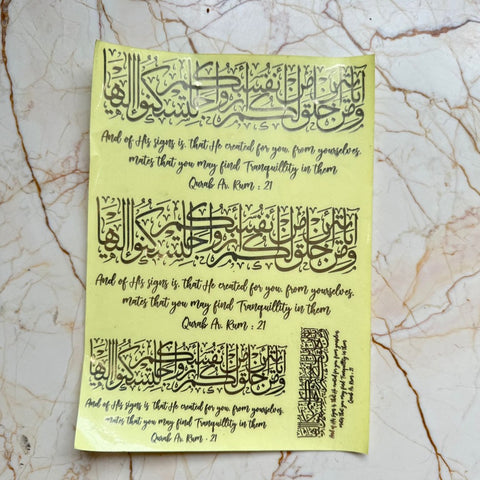 ومن آياته أن خلق لكم من أنفسكم أزواجا لتسكنوا إليها
And of His signs is, that He created for you, from yourselves,
mates that you may find Tranquillity in them
Qurab Ar. Rum : 21
ومن آياته أن خلق لكم من أنفسكم أزواجا لتسكنوا إليها
And of His signs is, that He created for you, from yourselves,
mates that you may find Tranquillity in them
Qurab Ar. Rum : 21
ومن آياته أن خلق لكم من أنفسكم أزواجا لتسكنوا إليها
And of His signs is, that He created for you, from yourselves,
mates that you may find Tranquillity in them
Qurab Ar. Rum : 21
And of His signs is, that He created for you, from yourselves,
mates that you may find Tranquillity in them